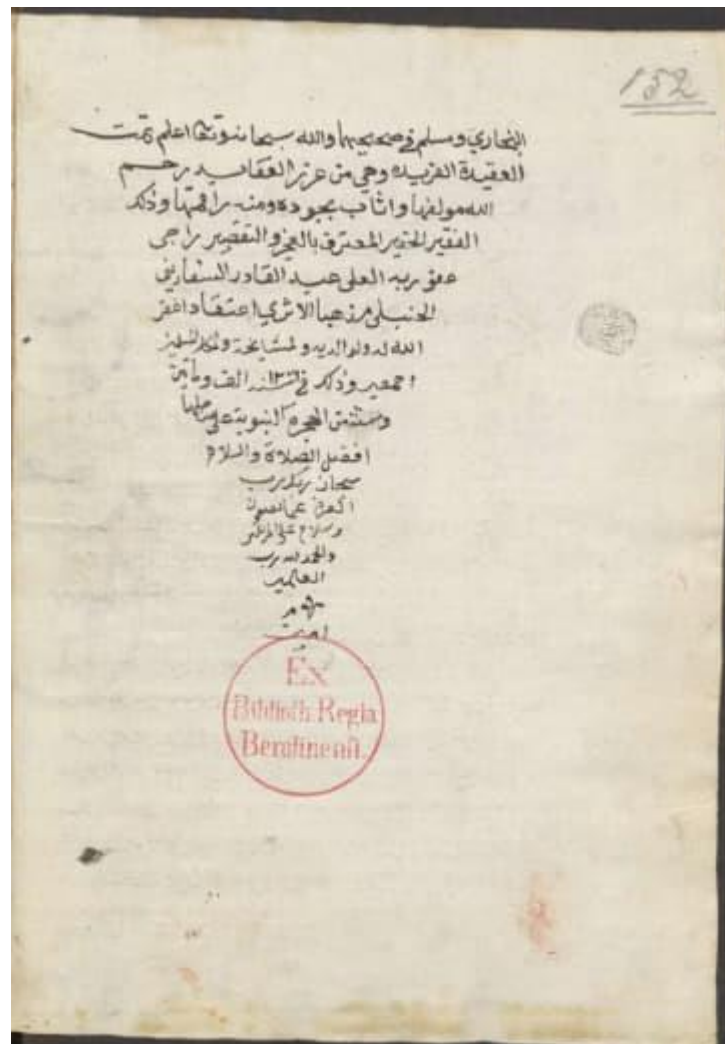 152
البخاري ومسلم في صحيحيهما والله سبحانه وتعالى اعلم تمت
العقيدة الفريدة وهي من غرر العقايد رحم
الله مولفها واثاب بجوده ومنه راقمها وذلك
الفقير الحقير المعترف بالعجز والتقصير راجي
عفو ربه العلي عبد القادر السفاريني
الحنبلي مذهبا الاثري اعتقادا غفر
الله له ولوالديه ولمشايخه ولكل المسلمين
اجمعين وذلك في سنة الف ومأية
من الهجرة النبوية على صاحبها
افضل الصلاة والسلام
سبحان ربك رب
العزة عما يصفون
وسلام على المرسلين
والحمد لله رب
العالمين
امين
Ex
Biblioth. Regia
Berolinenſi.